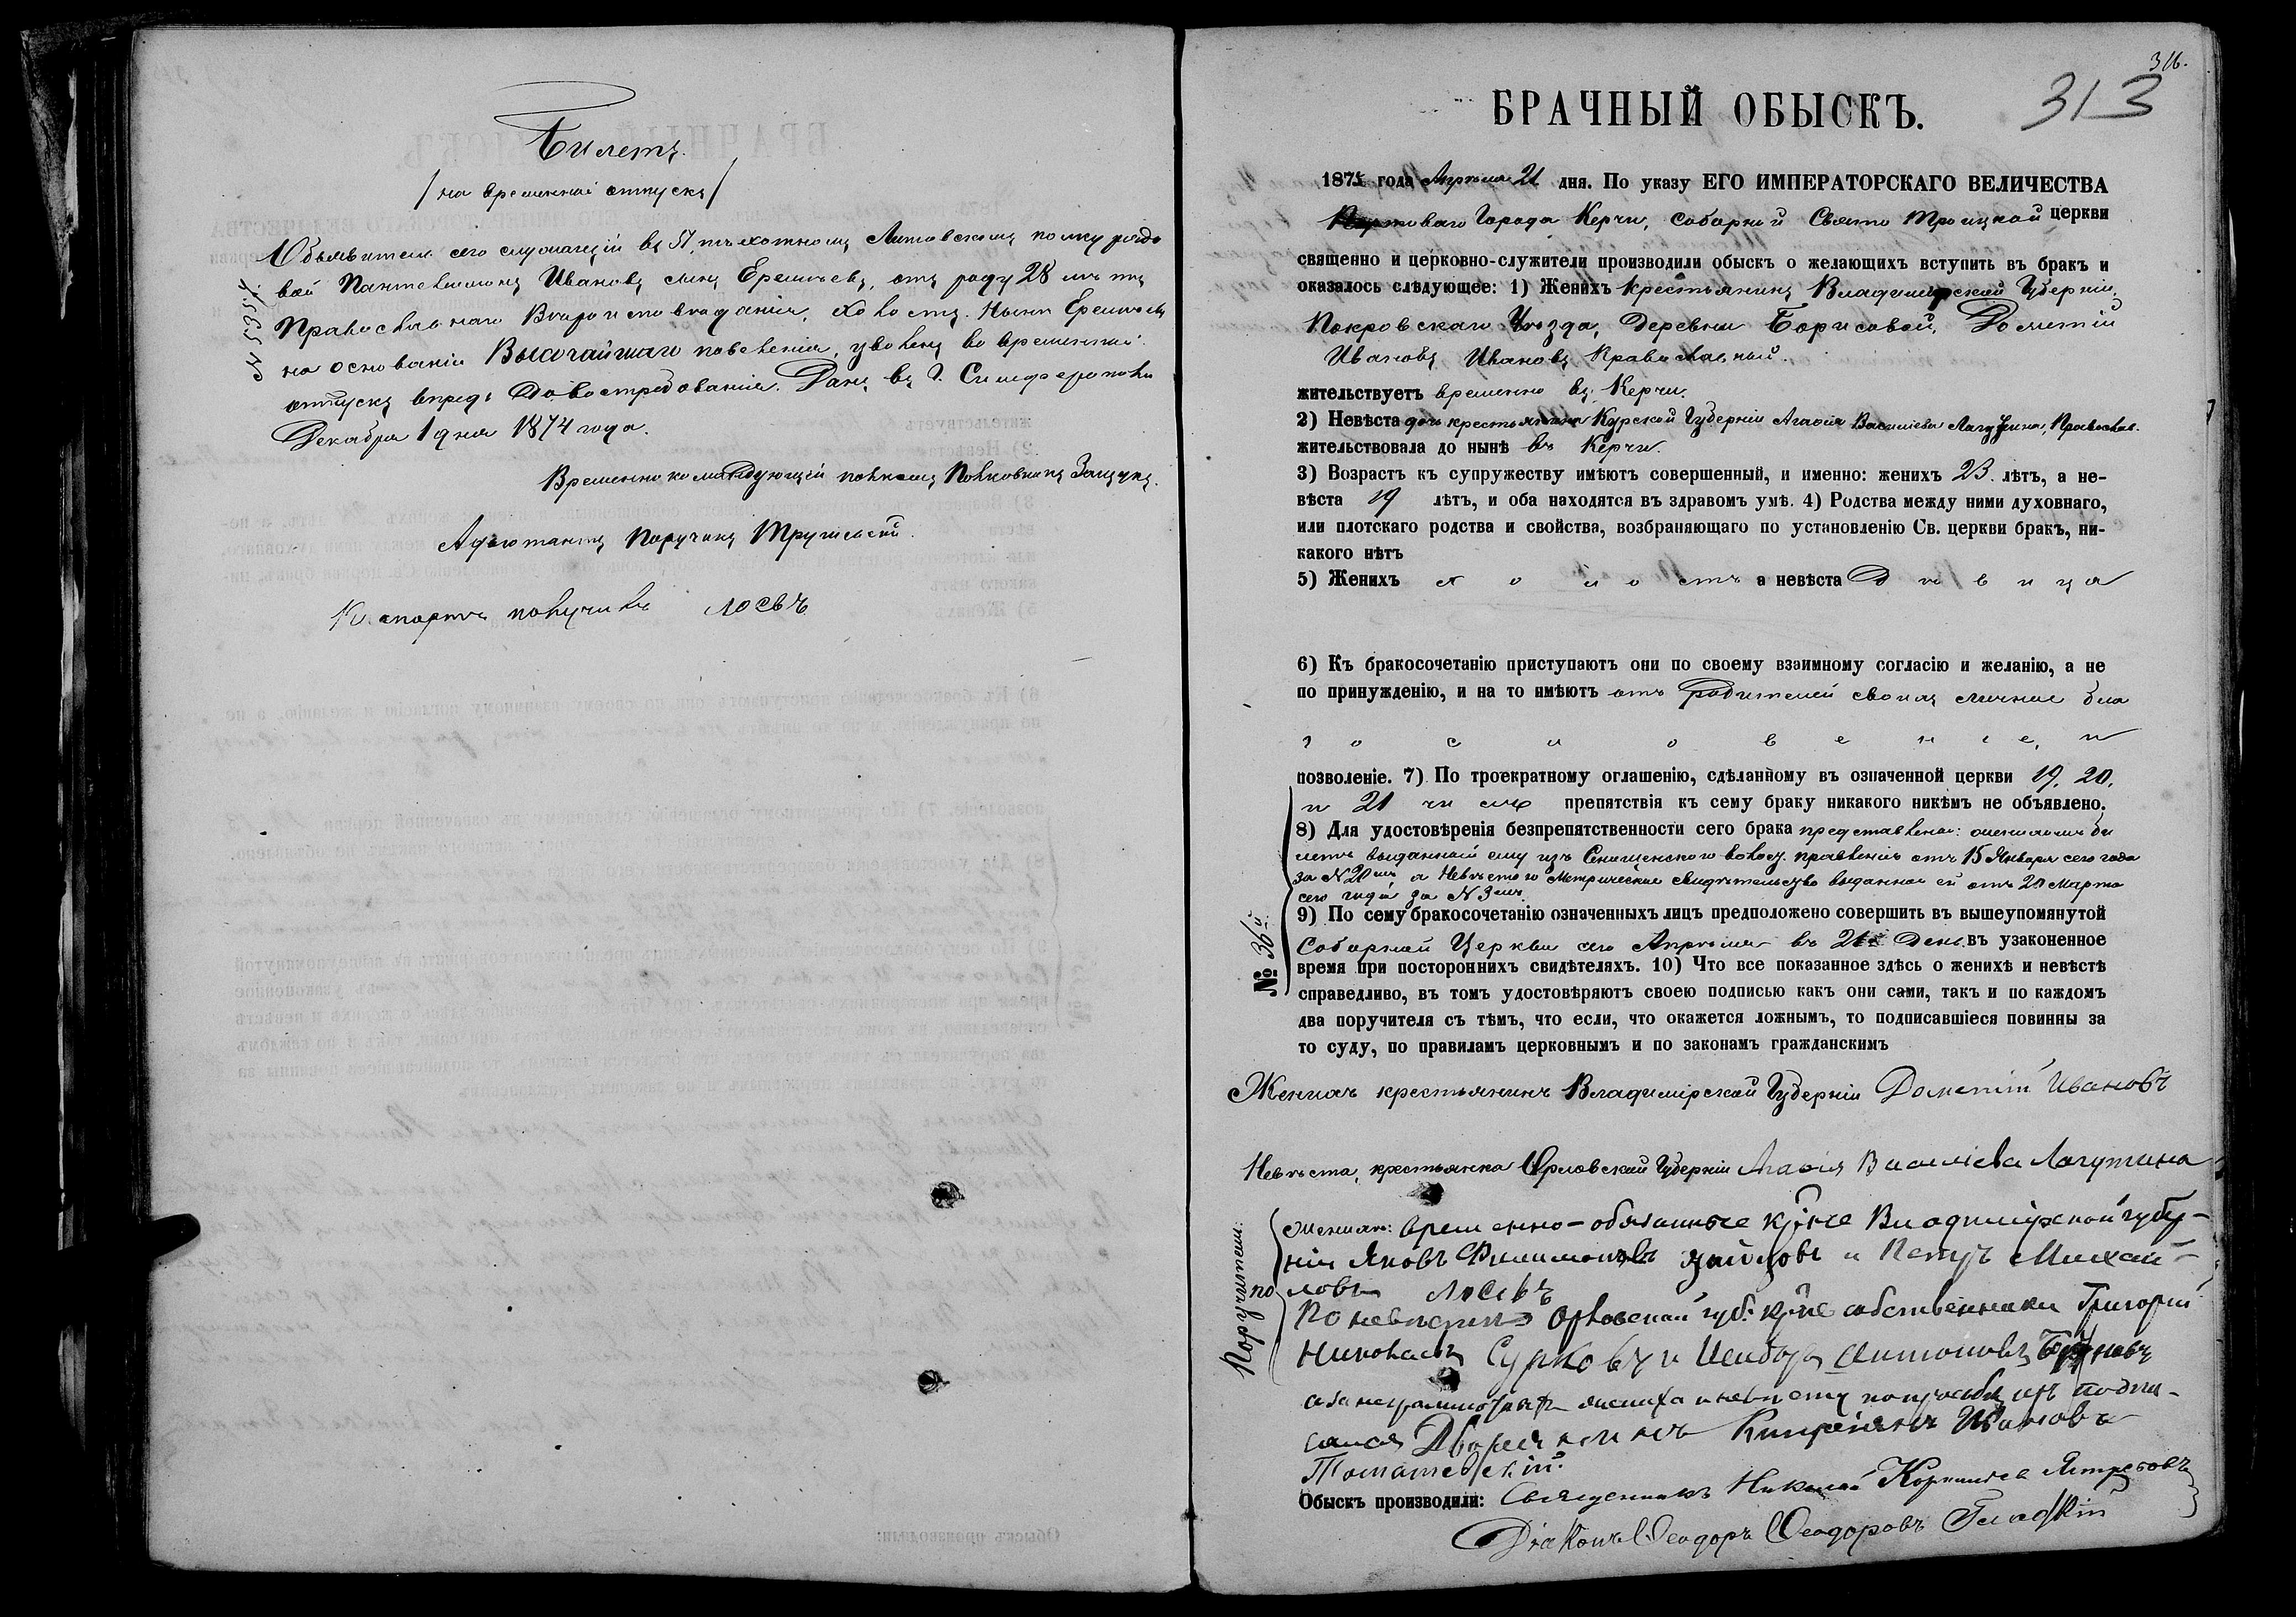 Билетъ
/на временный отпускъ/
Объявитель сего служащій въ 51 пѣхотномъ Литовскомъ полку рядо
вой Пантелимонъ Ивановъ сынъ Еремѣевъ, отъ роду 28 лѣтъ
Православнаго Вѣроисповѣданія, Холостъ. Нынѣ Еремѣевъ
на основаніи Высочайшаго повеленія, уволенъ во временный
отпускъ впредь до востребованія. Данъ въ г. Симферополѣ
Декабря 1 дня 1874 года.
Временно командующій полкомъ Полковникъ Защукъ.
Адъютантъ Поручикъ
получилъ Лосвъ
316.
313
БРАЧНЫЙ ОБЫСКЪ.
1875 года Апрѣля 21 дня. По указу ЕГО ИМПЕРАТОРСКАГО ВЕЛИЧЕСТВА
Портоваго Города Керчи, Соборной Свято Троицкой церкви
священно и церковно-служители производили обыскъ о желающихъ вступить въ бракъ и
оказалось слѣдующее: 1) Женихъ крестьянинъ Владимирской Губерніи,
Покровскаго Уѣзда, Деревни Борисовой, Дометій
Ивановъ Ивановъ Православный.
жительствуетъ временно въ Керчи.
2) Невѣста дочь крестьянина Курской Губерніи Агафія Василіева Лагутина, Православ.
жительствовала до нынѣ въ Керчи.
3) Возрастъ къ супружеству имѣютъ совершенный, и именно: женихъ 23 лѣтъ, а не-
вѣста 19 лѣтъ, и оба находятся въ здравомъ умѣ. 4) Родства между ними духовнаго,
или плотскаго родства и свойства, возбраняющаго по установленію Св. церкви бракъ, ни-
какого нѣтъ
5) Женихъ холостъ а невѣста Дѣвица
6) Къ бракосочетанію приступаютъ они по своему взаимному согласію и желанію, а не
по принужденію, и на то имѣютъ отъ родителей своихъ личное бла
гословеніе, и
позволеніе. 7) По троекратному оглашенію, сдѣланному въ означенной церкви 19, 20,
и 21 числѣ препятствія къ сему браку никакого никѣмъ не объявлено.
8) Для удостовѣренія безпрепятственности сего брака представлены: женихомъ би
летъ выданный ему изъ волос. правленія отъ 15 Января сего года
за № 20мъ а Невѣстою Метрическое свидѣтельство выданное ей отъ 20 Марта
сего года за № 3мъ.
9) По сему бракосочетанію означенныхъ лицъ предположено совершить въ вышеупомянутой
Соборной Церкви сего Апрѣля въ 21й День въ узаконенное
время при постороннихъ свидѣтеляхъ. 10) Что все показанное здѣсь о женихѣ и невѣстѣ
справедливо, въ томъ удостовѣряютъ своею подписью какъ они сами, такъ и по каждомъ
два поручителя съ тѣмъ, что если, что окажется ложнымъ, то подписавшіеся повинны за
то суду, по правиламъ церковнымъ и по законамъ гражданскимъ
№ 36й.
Женихъ крестьянинъ Владимірской Губерніи Дометій Ивановъ
Невѣста, крестьянка Орловской Губерніи Агафія Василіева Лагутина
Поручители:
по
женихѣ: временно-обязанные кр-не Владимірской губер-
ніи Яковъ Филимоновъ Зайцовъ и Петръ Михай-
ловъ Лосевъ
По невѣстѣ Орловской губ. кр-не собственники Григорій
Николаевъ Сурковъ и Исидоръ Антоновъ
а за неграмотныхъ жениха и невѣсту по просьбѣ ихъ подпи-
сался Дворянинъ Кипріянъ Ивановъ

Обыскъ производили: Священникъ Николай Корниліев Ястребовъ
Діаконъ Ѳеодоръ Ѳеодоровъ